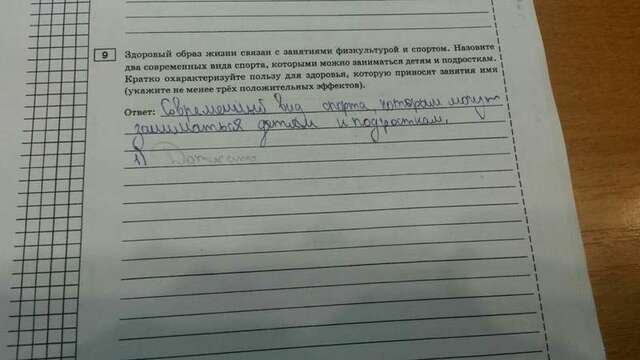 9
Здоровый образ жизни связан с занятиями физкультурой и спортом. Назовите
два современных вида спорта, которыми можно заниматься детям и подросткам.
Кратко охарактеризуйте пользу для здоровья, которую приносят занятия ими
(укажите не менее трёх положительных эффектов).
Ответ: Современный вид спорта которым могут
заниматься детям и подросткам.
1)